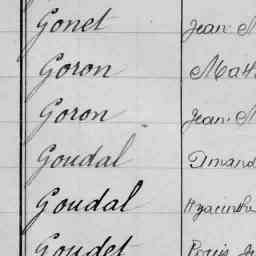 Gonet Jean
Goron Math
Goron Jean
Goudal Amand
Goudal Hyacinthe
Goudet Louis